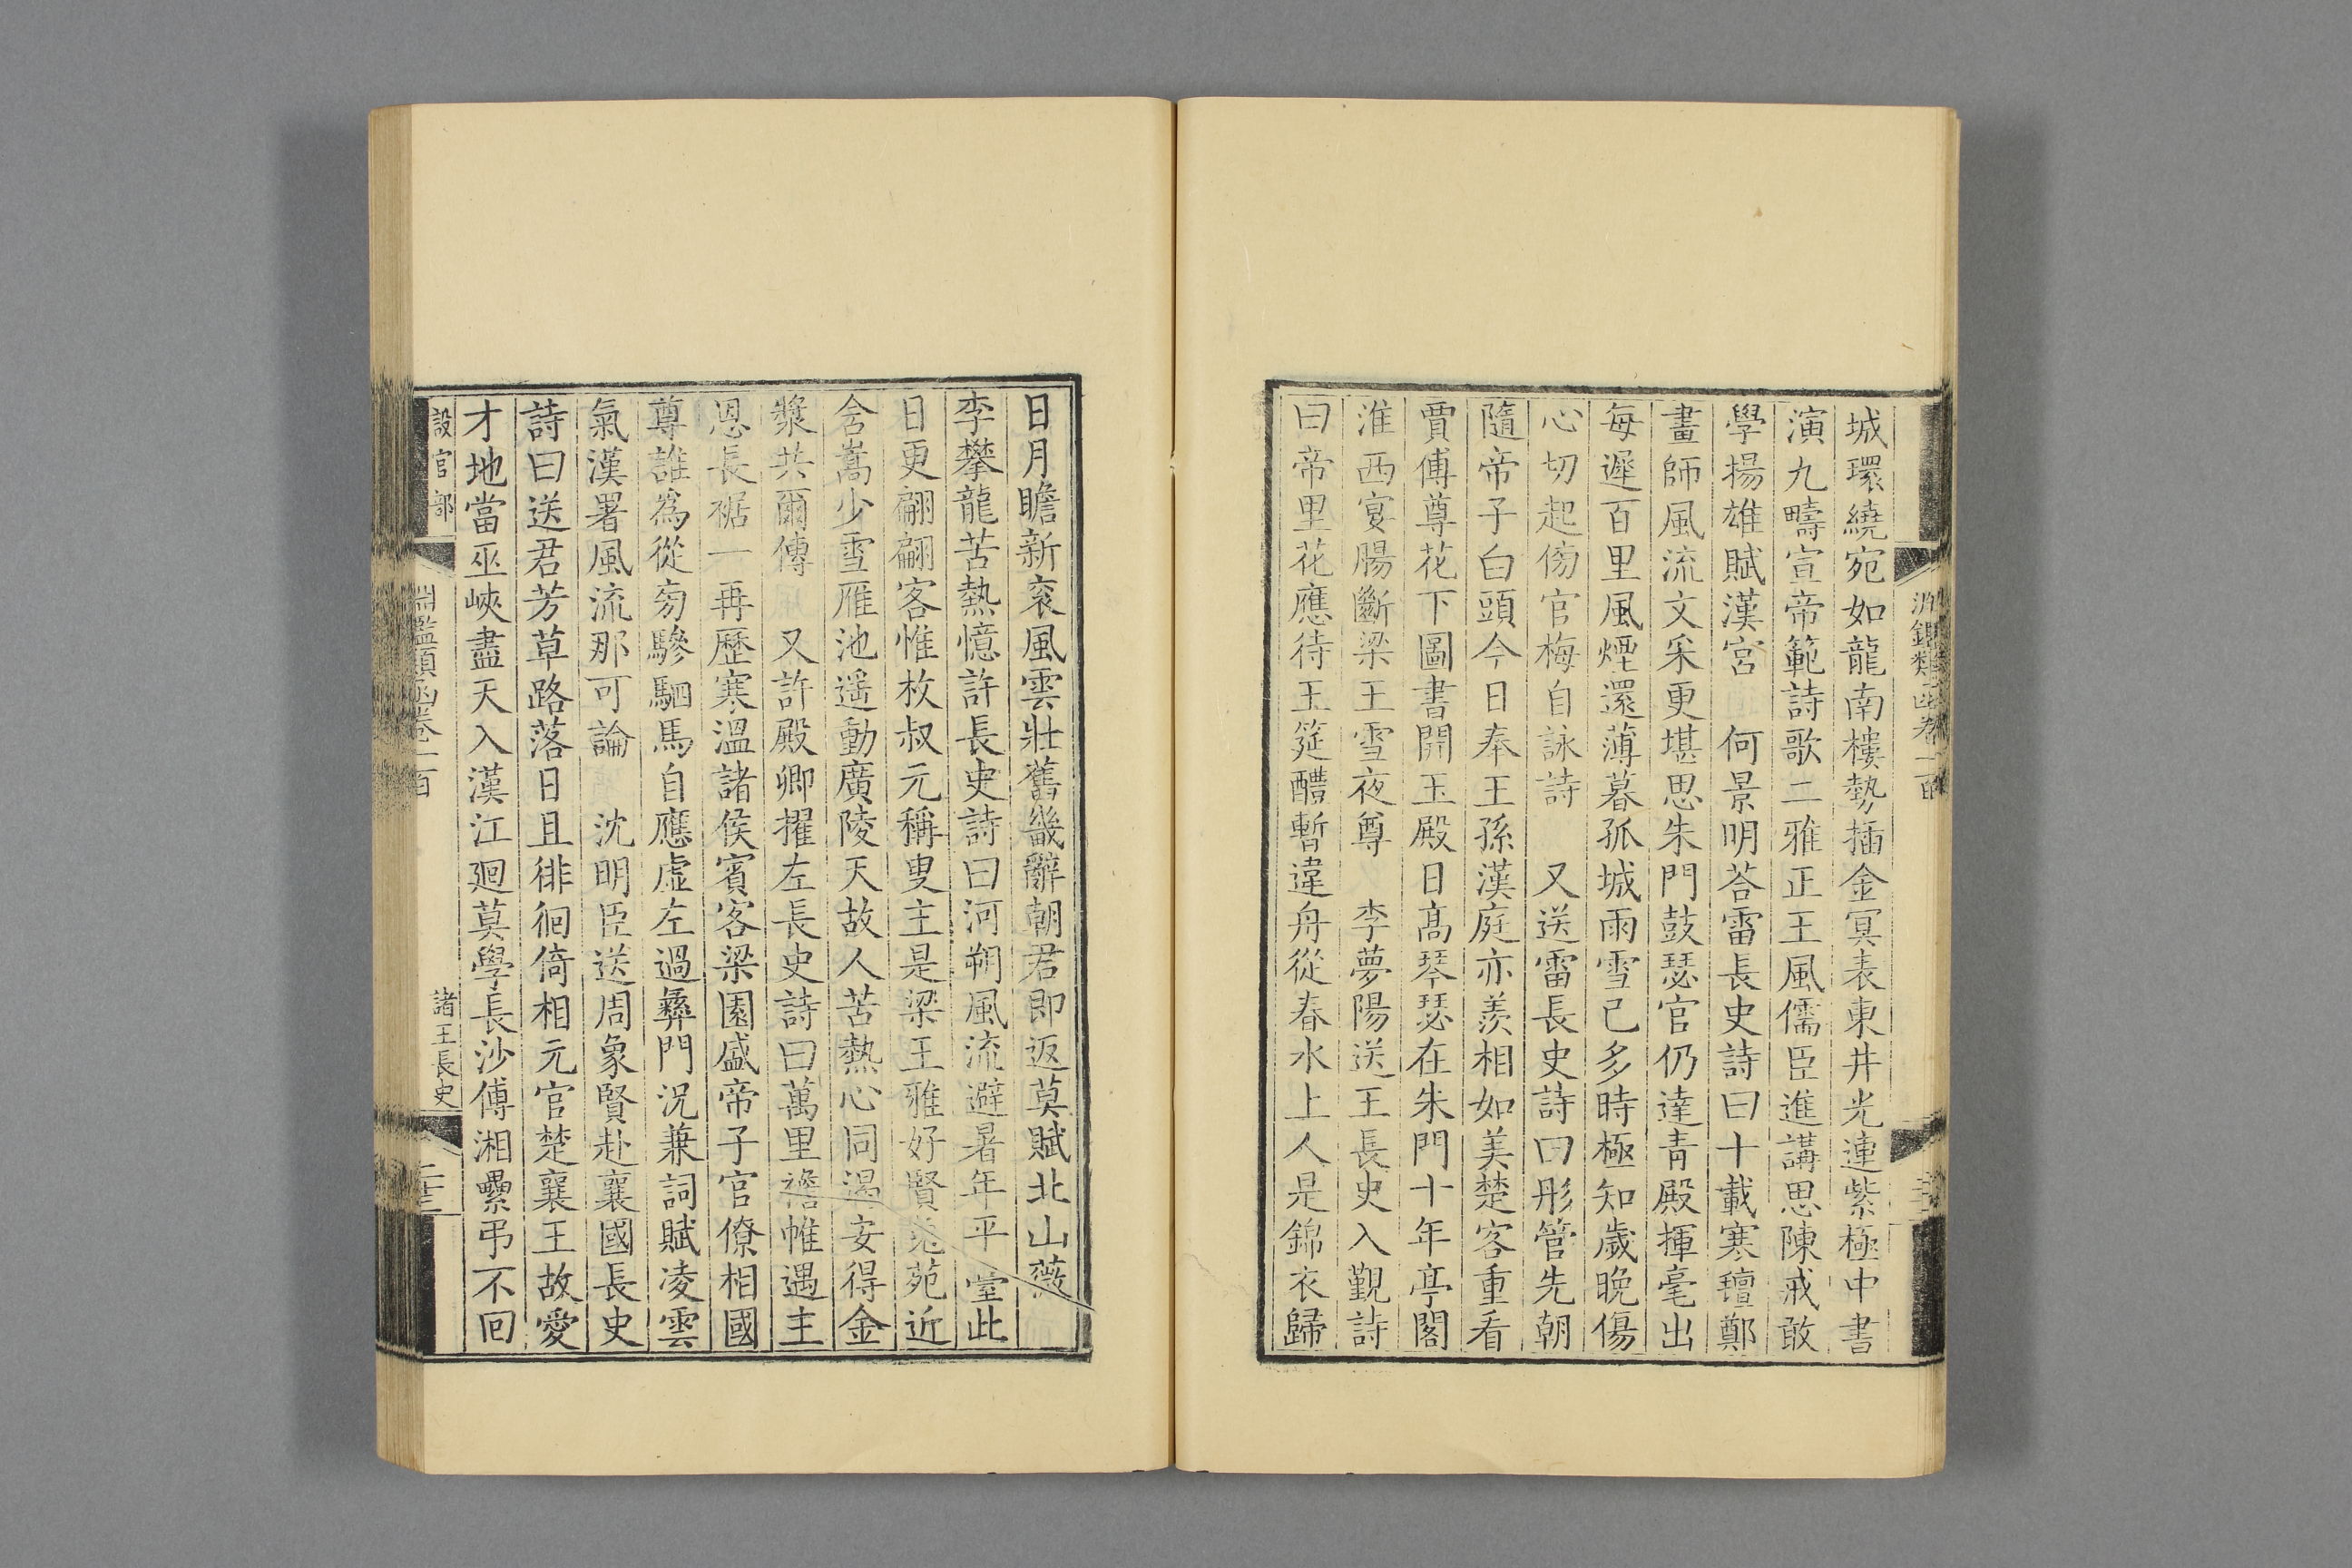 城環繞宛如龍南樓勢插金冥表東井光連紫極中書
演九疇宣帝範詩歌二雅正王風儒臣進講思陳戒敢
學揚雄賦漢宮　何景明荅雷長史詩曰十載寒氊鄭
畫師風流文采更堪思朱門鼓瑟官仍達青殿揮毫出
每遲百里風煙還薄暮孤城雨雪已多時極知歲晚傷
心切起傍官梅自詠詩　又送雷長史詩曰彤管先朝
隨帝子白頭今日奉王孫漢庭亦羨相如美楚客重看
賈傅尊花下圖書開玉殿日高琴瑟在朱門十年亭閣
淮西宴腸斷梁王雪夜尊　李夢陽送王長史入覲詩
曰帝里花應待玉筵醴暫違舟從春水上人是錦衣歸
日月瞻新衮風雲壯舊畿辭朝君即返莫賦北山薇
李攀龍苦熱憶許長史詩曰河朔風流避暑年平臺此
日更翩翩客惟枚叔元稱叟主是梁王雅好賢兔苑近
含嵩少雪雁池遥動廣陵天故人苦熱心同渴安得金
漿共爾傳　又許殿卿擢左長史詩曰萬里襜帷遇主
恩長裾一再歷寒溫諸侯賓客梁園盛帝子官僚相國
尊誰爲從芻驂駟馬自應虛左過彝門況兼詞賦凌雲
氣漢署風流那可論　沈明臣送周象賢赴襄國長史
詩曰送君芳草路落日且徘徊倚相元官楚襄王故愛
才地當巫峽盡天入漢江廻莫學長沙傅湘纍弔不回
設官部
淵鑑類函卷一百
諸王長史